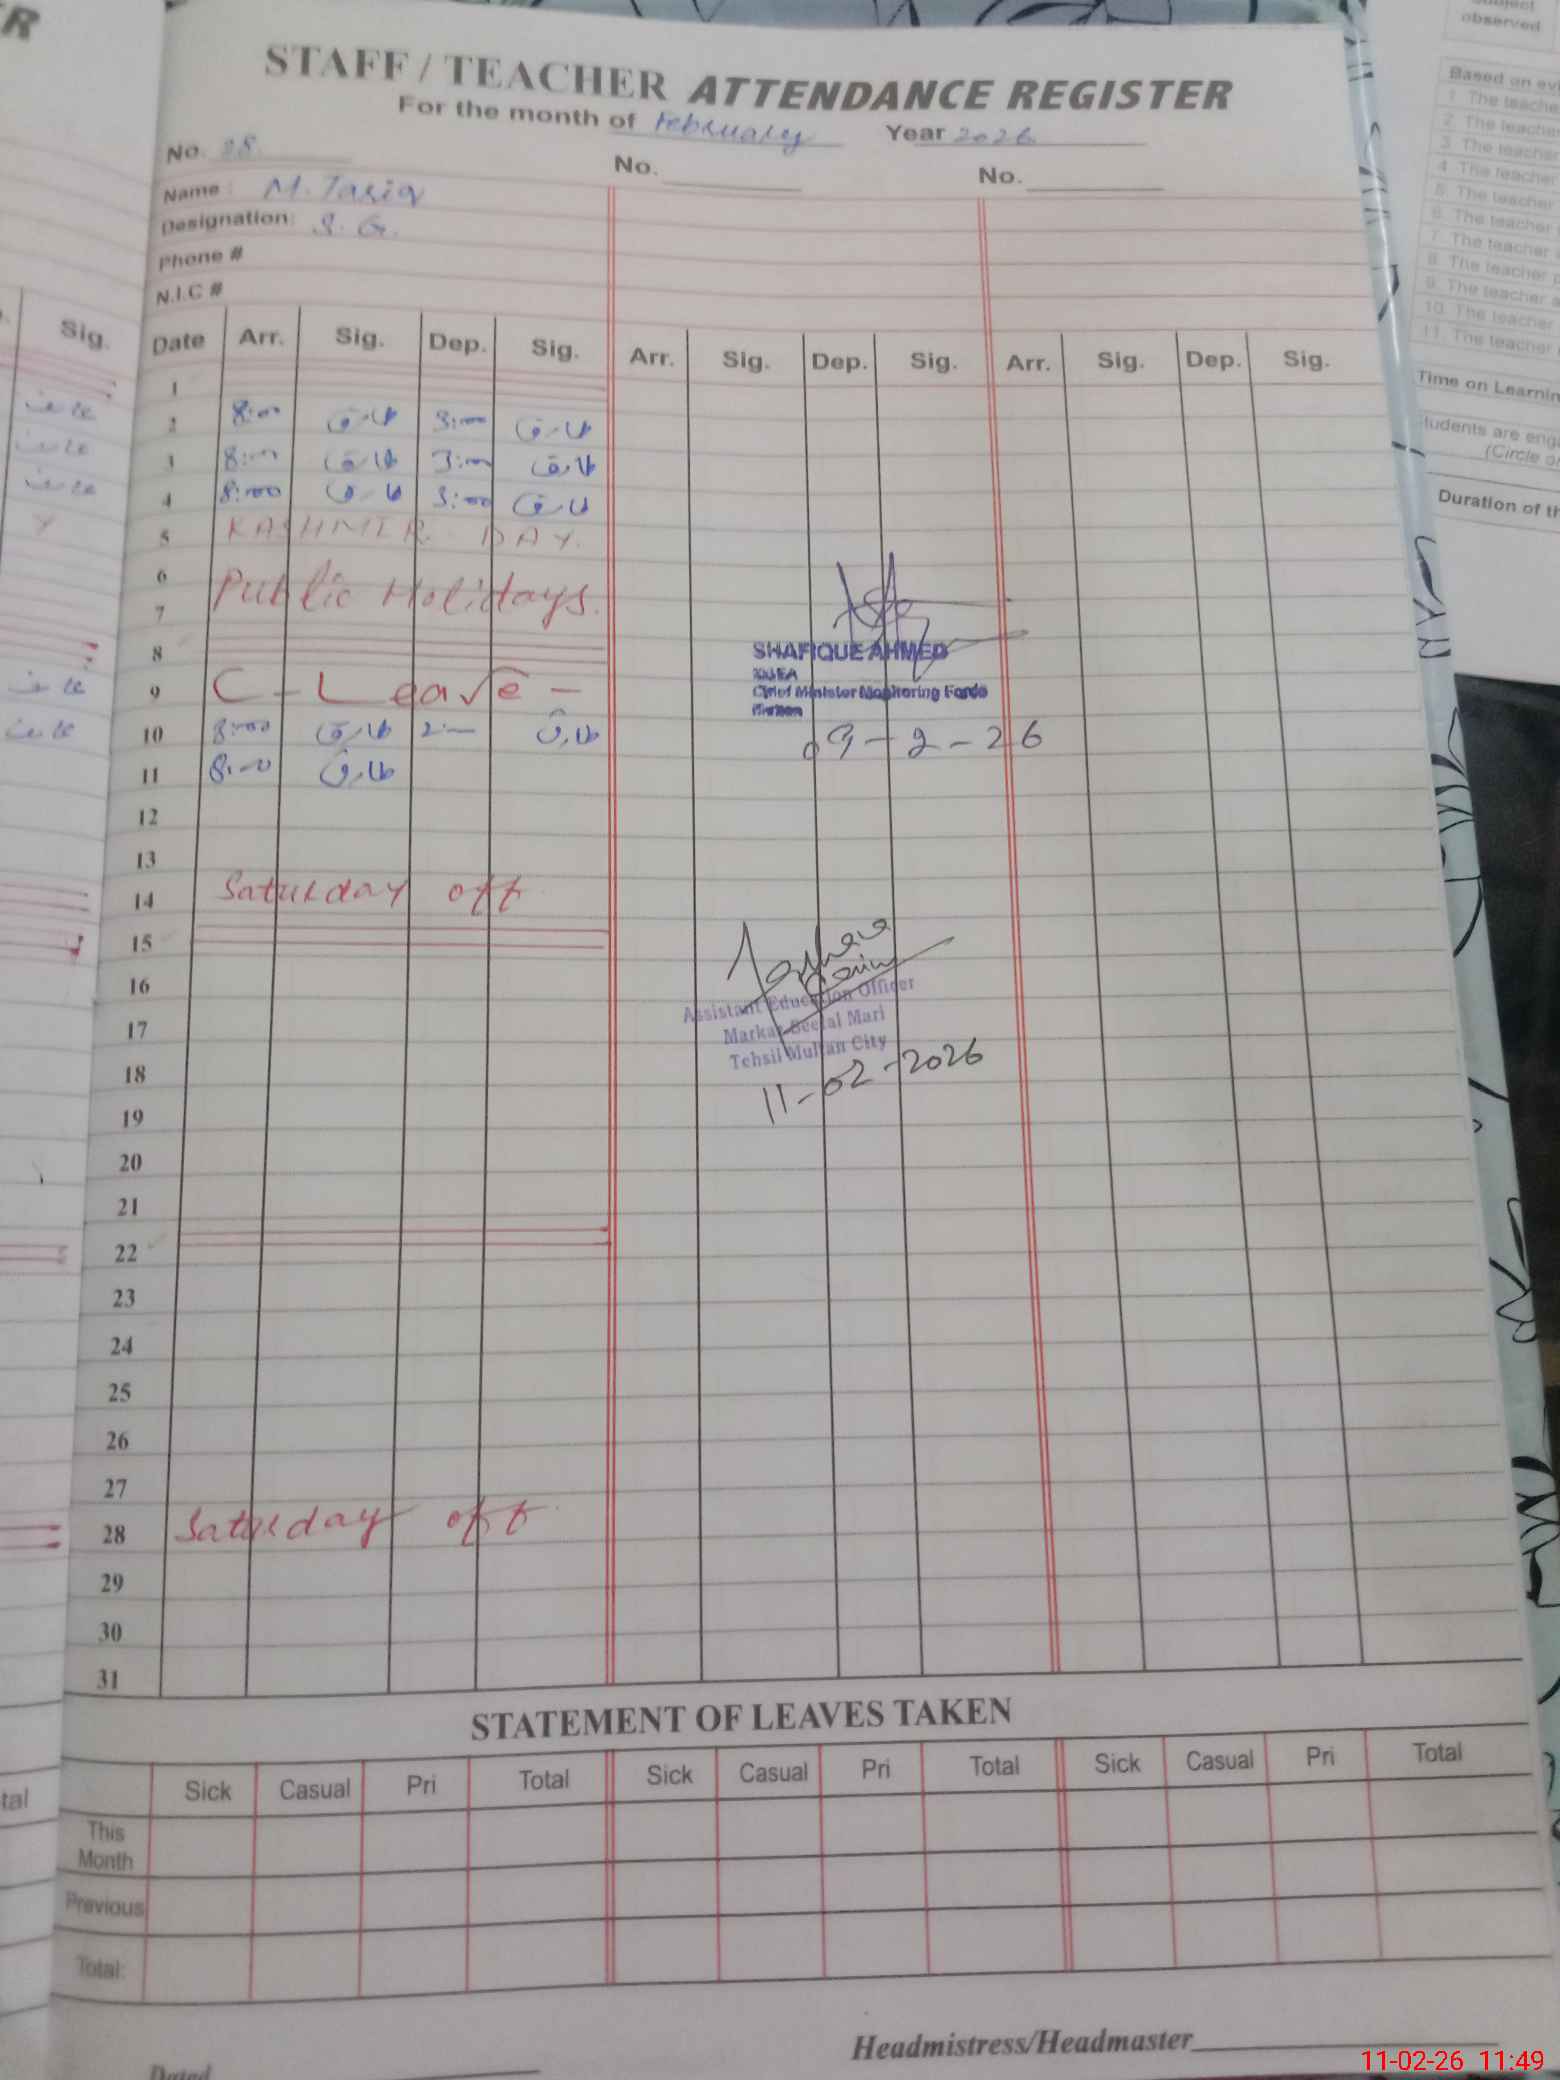 R
STAFF / TEACHER ATTENDANCE REGISTER
For the month of February Year 2026
No. 28. No. No.
Name : M. Tariq
Designation: S. G.
Phone #
N.I.C #
Sig. Date Arr. Sig. Dep. Sig. Arr. Sig. Dep. Sig. Arr. Sig. Dep. Sig.
1
2 8:00 طارق 3:00 طارق
3 8:00 طارق 3:00 طارق
4 8:00 طارق 3:00 طارق
5 KASHMIR DAY.
6 Public Holidays.
7
8
9 C - Leave -
10 8:00 طارق 2:— طارق
11 8:00 طارق
12
13
14 Saturday off
15
16
17
18
19
20
21
22
23
24
25
26
27
28 Saturday off
29
30
31
SHAFIQUE AHMED
Chief Minister Monitoring Force
09-2-26
Assistant Education Officer
Tehsil Multan City
11-02-2026
STATEMENT OF LEAVES TAKEN
Sick Casual Pri Total Sick Casual Pri Total Sick Casual Pri Total
tal
This
Month
Previous
Total:
Headmistress/Headmaster
Dated
observed
Based on
1. The teacher
2. The teacher
3. The teacher
4. The teacher
5. The teacher
6. The teacher
7. The teacher
8. The teacher
9. The teacher
10. The teacher
11. The teacher
Time on
(Circle
Duration of
11-02-26 11:49